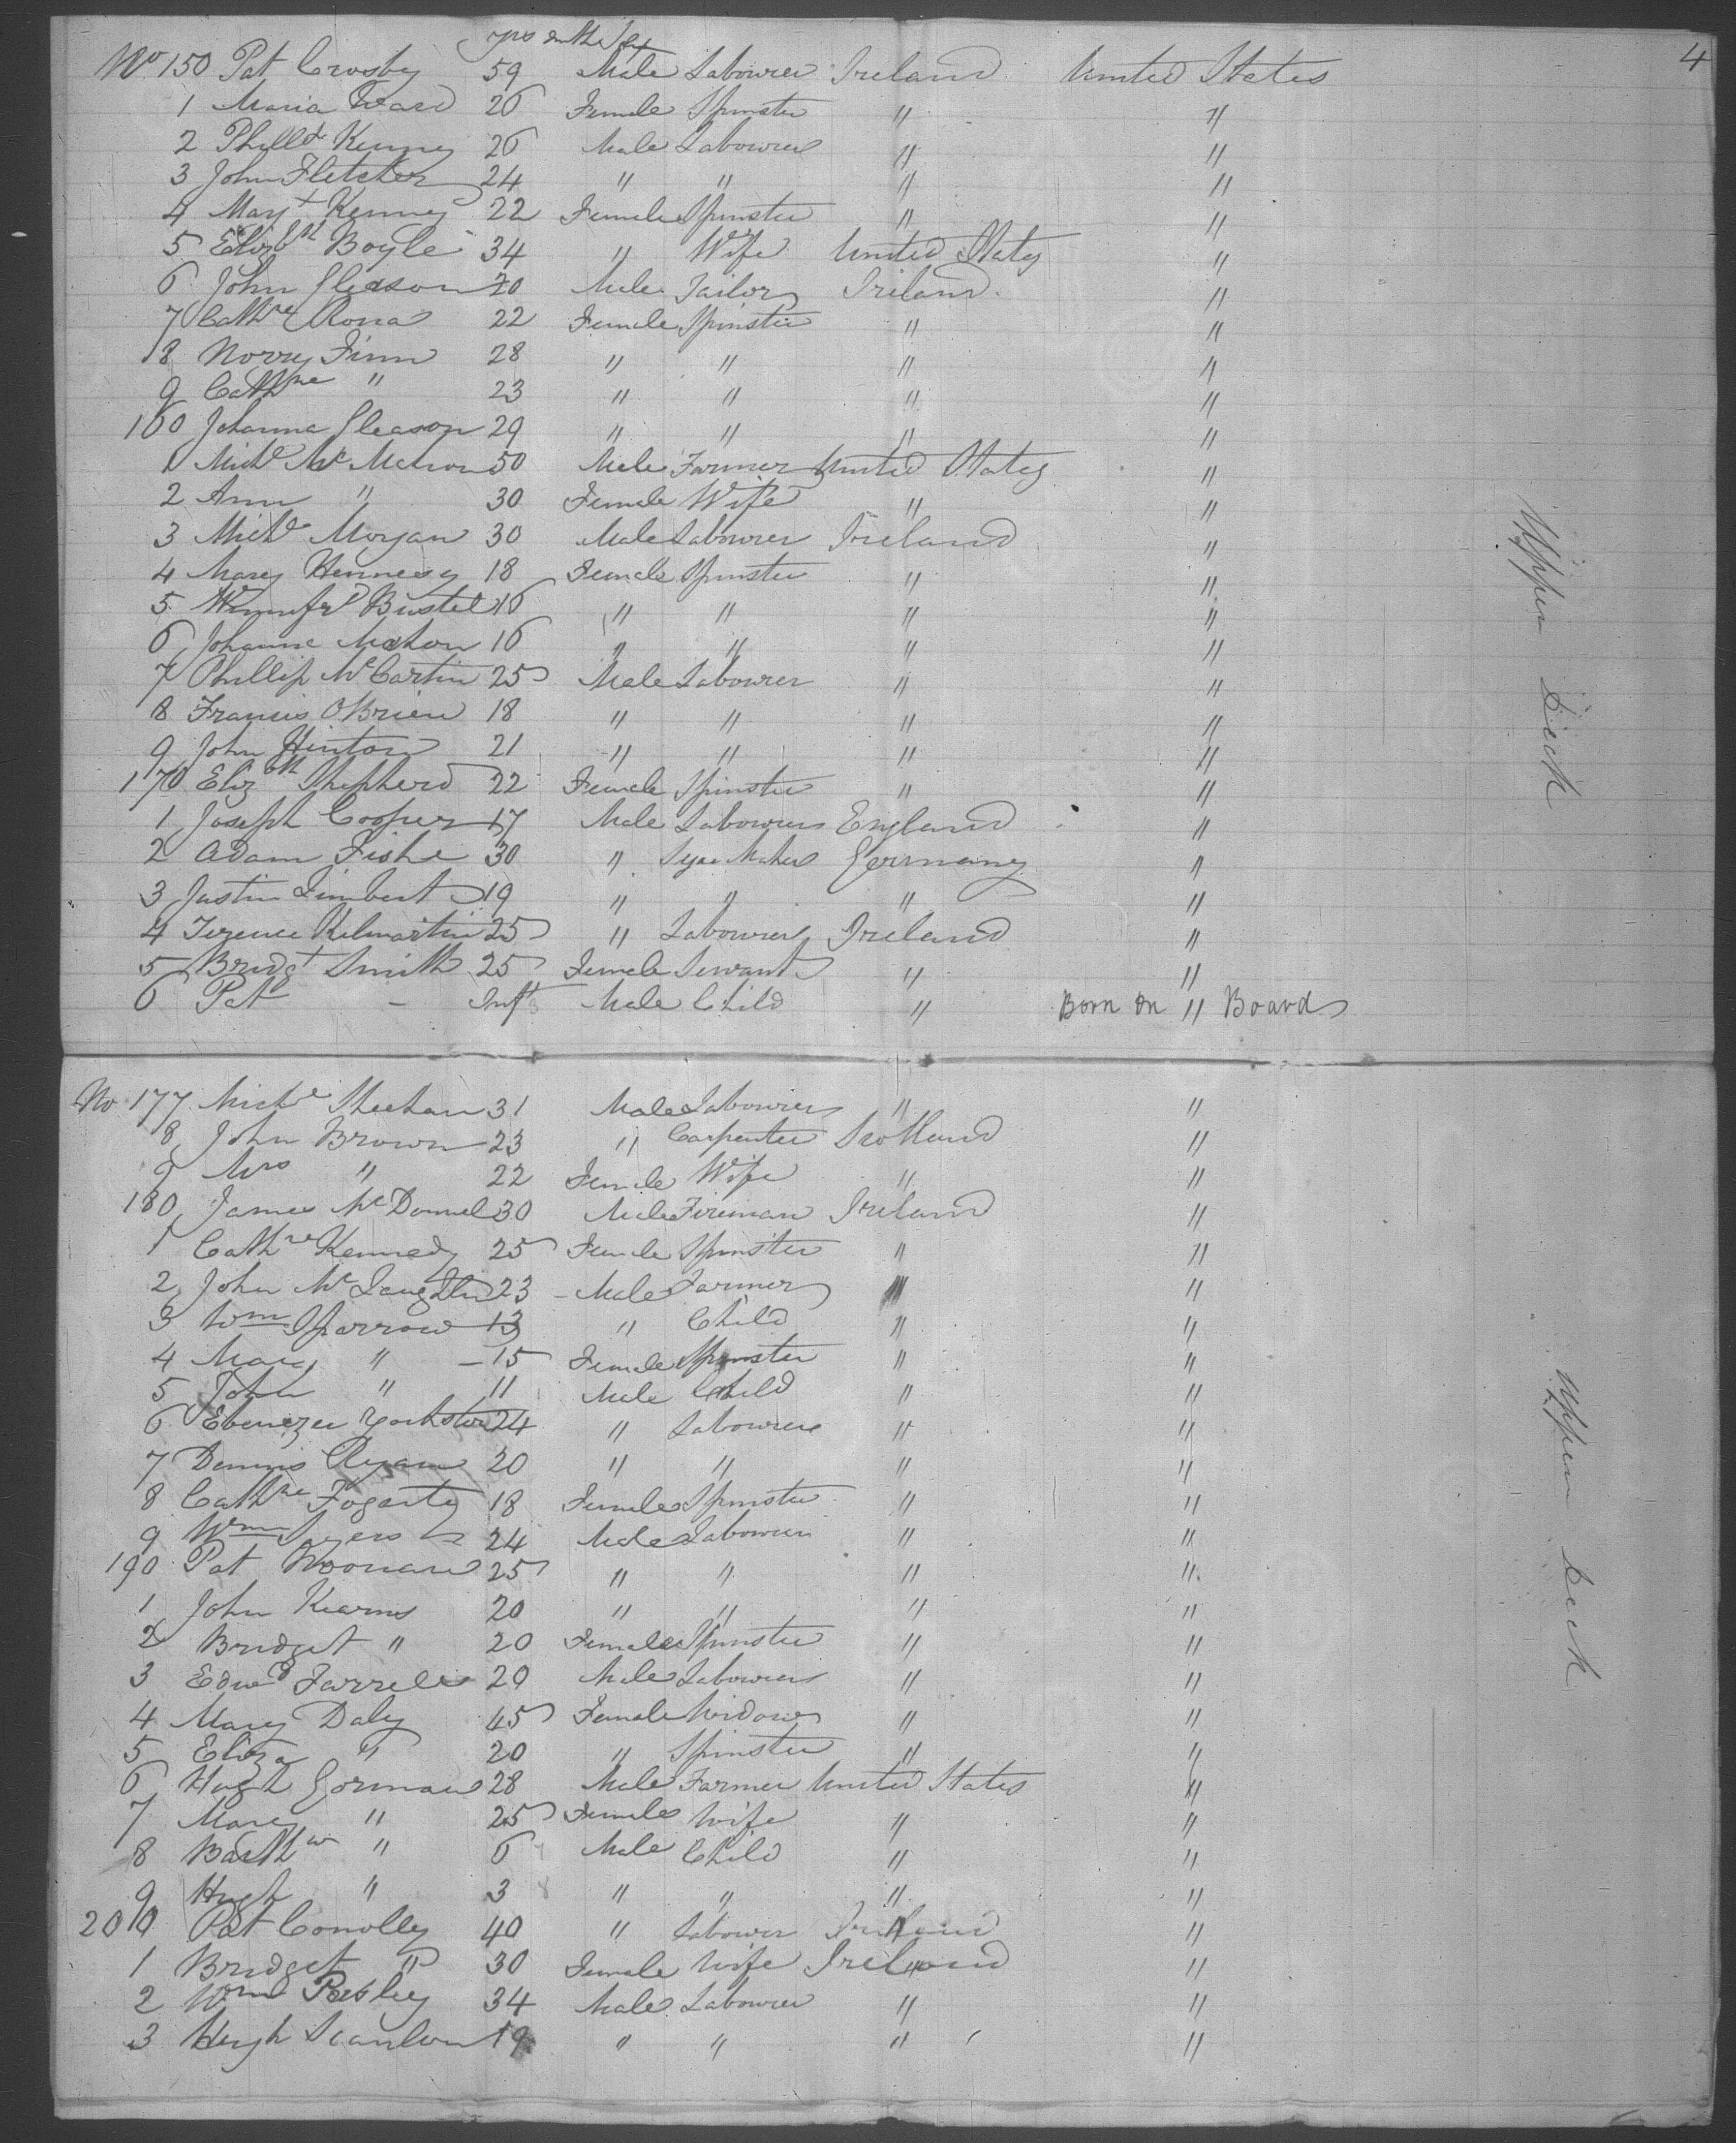 yrs mths Sex
4
No 150 Pat Crosby 59 Male Labourer Ireland United States
1 Maria Ward 26 Female Spinster " "
2 Phill Kenney 26 Male Labourer " "
3 John Fletcher 24 " " " "
4 Marg't Kenney 22 Female Spinster " "
5 Eliz'bth Boyle 34 " Wife United States "
6 John Gleason 20 Male Tailor Ireland "
7 Cath'ne 22 Female Spinster " "
8 Norry Finn 28 " " " "
9 Cath'ne " 23 " " " "
160 Johanna Gleason 29 " " " "
1 Mich'l Mc Mahon 50 Male Farmer United States "
2 Ann " 30 Female Wife " "
3 Mich'l Morgan 30 Male Labourer Ireland "
4 Mary Hennesy 18 Female Spinster " "
5 Winnifr'd 16 " " " "
6 Johanna Mahon 16 " " " "
7 Phillip Mc Cartin 25 Male Labourer " "
8 Francis O'Brien 18 " " " "
9 John Hinton 21 " " " "
170 Eliz'bth Shepherd 22 Female Spinster " "
1 Joseph Cooper 17 Male Labourer England "
2 Adam Fishe 30 " Maker Germany "
3 Justin Limbert 19 " " " "
4 Terence Kilmartin 25 " Labourer Ireland "
5 Bridg't Smith 25 Female Servant " "
6 Pat - Inft Male Child " Born on " Board
Upper Deck
No 177 Mich'l Sheehan 31 Male Labourer " "
8 John Brown 23 " Carpenter Scotland "
9 Mrs " 22 Female Wife " "
180 James Mc Donnel 30 Male Fireman Ireland "
1 Cath'ne Kennedy 25 Female Spinster " "
2 John Mc Laughlin 23 - Male Farmer " "
3 Wm Sparrow 13 " Child " "
4 Mary " 15 Female Spinster " "
5 John " 11 Male Child " "
6 Ebenezer 24 " Labourer " "
7 Dennis Ryan 20 " " " "
8 Cath'ne Fogerty 18 Female Spinster " "
9 Wm 24 Male Labourer " "
190 Pat Noonan 25 " " " "
1 John Kearns 20 " " " "
2 Bridget " 20 Female Spinster " "
3 Edw'd Farrell 20 Male Labourer " "
4 Mary Daly 45 Female Widow " "
5 Eliza " 20 " Spinster " "
6 Hugh Gorman 28 Male Farmer United States "
7 Mary " 25 Female Wife " "
8 Barth'w " 6 Male Child " "
9 Hugh " 3 " " " "
200 Pat Conolly 40 " Labourer Ireland "
1 Bridget " 30 Female Wife Ireland "
2 Wm 34 Male Labourer " "
3 Hugh Scanlon 19 " " " "
Upper Deck